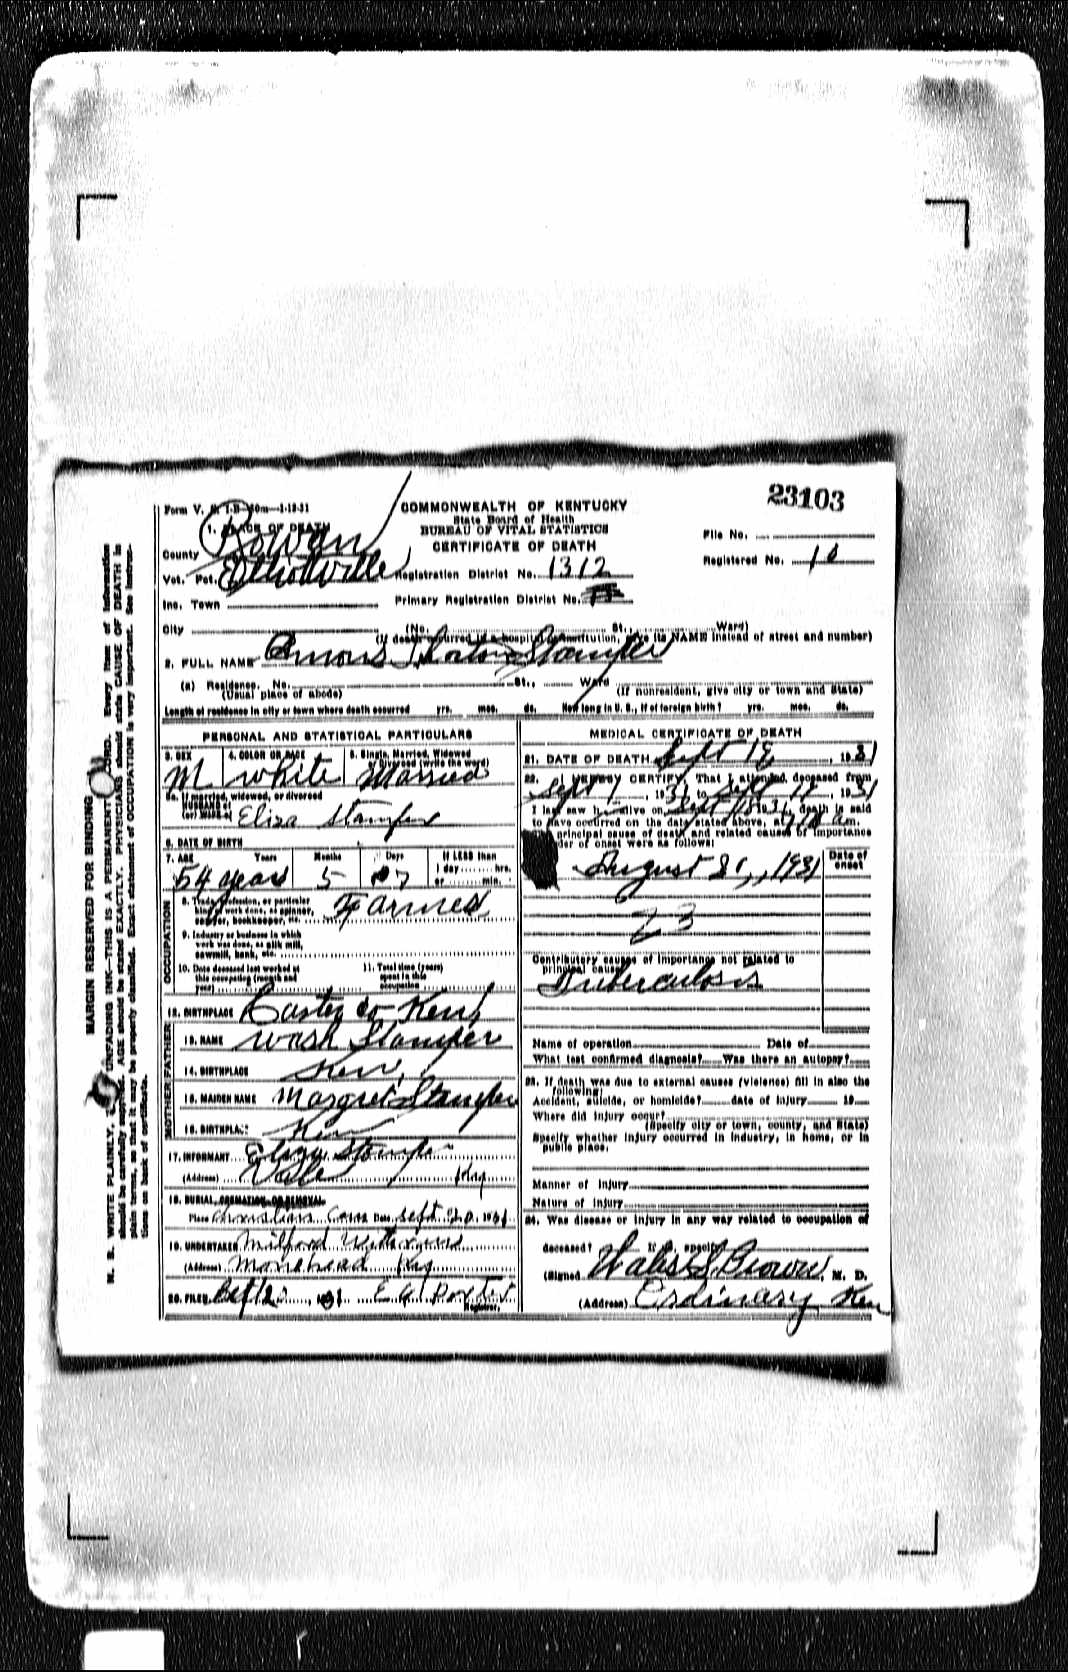 23103
Form V. S. 1-B—50m—1-13-31
COMMONWEALTH OF KENTUCKY
State Board of Health
BUREAU OF VITAL STATISTICS
CERTIFICATE OF DEATH
File No.
Registered No. 18
1. PLACE OF DEATH
County Rowan
Vot. Pct. Elliottville Registration District No. 1312
Inc. Town Primary Registration District No.
City (No. St., Ward)
(If death occurred in a hospital or institution, give its NAME instead of street and number)
2. FULL NAME Stamper
(a) Residence. No. St., Ward
(Usual place of abode) (If nonresident, give city or town and State)
Length of residence in city or town where death occurred yrs. mos. ds. How long in U. S., if of foreign birth? yrs. mos. ds.
PERSONAL AND STATISTICAL PARTICULARS
3. SEX 4. COLOR OR RACE 5. Single, Married, Widowed or Divorced (write the word)
M white Married
5a. If married, widowed, or divorced
HUSBAND of
(or) WIFE of Eliza Stamper
6. DATE OF BIRTH
7. AGE Years Months Days If LESS than
1 day hrs.
54 years 5 7 or min.
OCCUPATION
8. Trade, profession, or particular
kind of work done, as spinner,
sawyer, bookkeeper, etc. Farmer
9. Industry or business in which
work was done, as silk mill,
sawmill, bank, etc.
10. Date deceased last worked at
this occupation (month and
year)
11. Total time (years)
spent in this
occupation
12. BIRTHPLACE Carter Co Ken
FATHER
13. NAME Wash Stamper
14. BIRTHPLACE Ken
MOTHER
15. MAIDEN NAME Margret Stamper
16. BIRTHPLACE Ken
17. INFORMANT Eliza Stamper
(Address) Vale Ky
18. BURIAL, CREMATION OR REMOVAL
Place Christian Cem Date Sept 20, 1931
19. UNDERTAKER Milford
(Address) Morehead Ky
20. FILED 1931 E A Porter
Registrar.
MEDICAL CERTIFICATE OF DEATH
21. DATE OF DEATH Sept 18, 1931
22. I HEREBY CERTIFY, That I attended deceased from
Sept 1, 1931, to Sept 17, 1931
I last saw h alive on Sept 1931, death is said
to have occurred on the date stated above, at a m.
principal cause of death and related causes of importance
der of onset were as follows:
Date of
onset
August 1931
23
Contributory causes of importance not related to
principal cause:
Tuberculosis
Name of operation Date of
What test confirmed diagnosis? Was there an autopsy?
23. If death was due to external causes (violence) fill in also the
following:
Accident, suicide, or homicide? date of injury 19
Where did injury occur?
(Specify city or town, county, and State)
Specify whether injury occurred in industry, in home, or in
public place.
Manner of injury
Nature of injury
24. Was disease or injury in any way related to occupation of
deceased? If so specify
(Signed) Brown, M. D.
(Address) Ordinary Ken
MARGIN RESERVED FOR BINDING
N. B. WRITE PLAINLY, UNFADING INK—THIS IS A PERMANENT RECORD. Every item of information
should be carefully supplied. AGE should be stated EXACTLY. PHYSICIANS should state CAUSE OF DEATH in
plain terms, so that it may be properly classified. Exact statement of OCCUPATION is very important. See instruc-
tions on back of certificate.